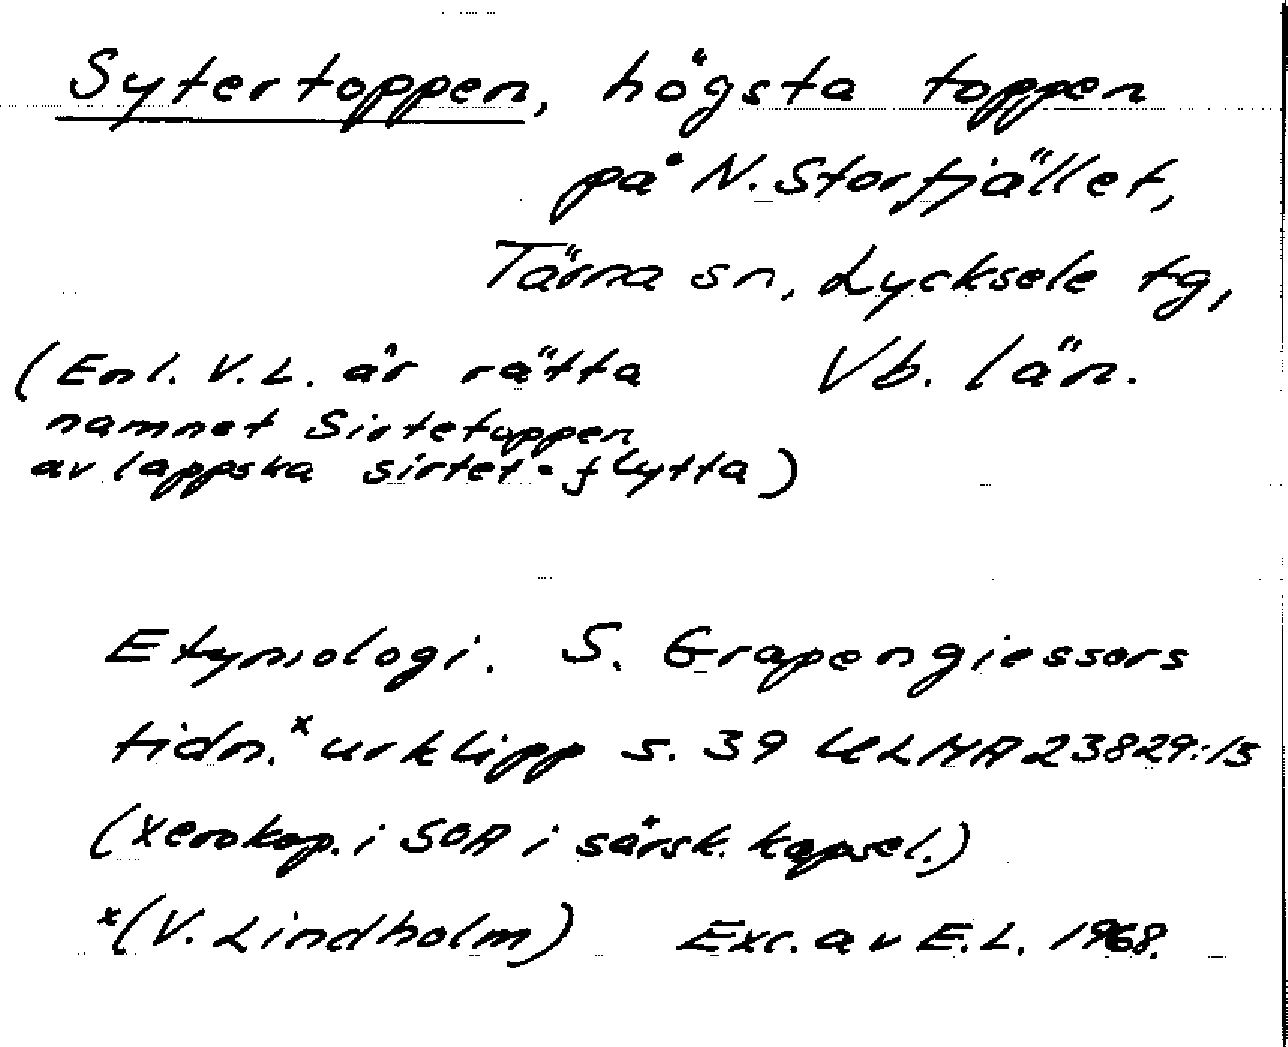 Sytertoppen, högsta toppen
på N. Storfjället,
Tärna sn, Lycksele tg,
Vb. län.
(Enl. V.L. är rätta
namnet Sirtetoppen
av lappska sirtet = flytta)
Etymologi. S. Grapengiessers
tidn.ˣ urklipp s. 39 ULMA 23829:15
(xerokop. i SOA i särsk. kapsel.)
ˣ(V. Lindholm) Exc. av E.L. 1968.